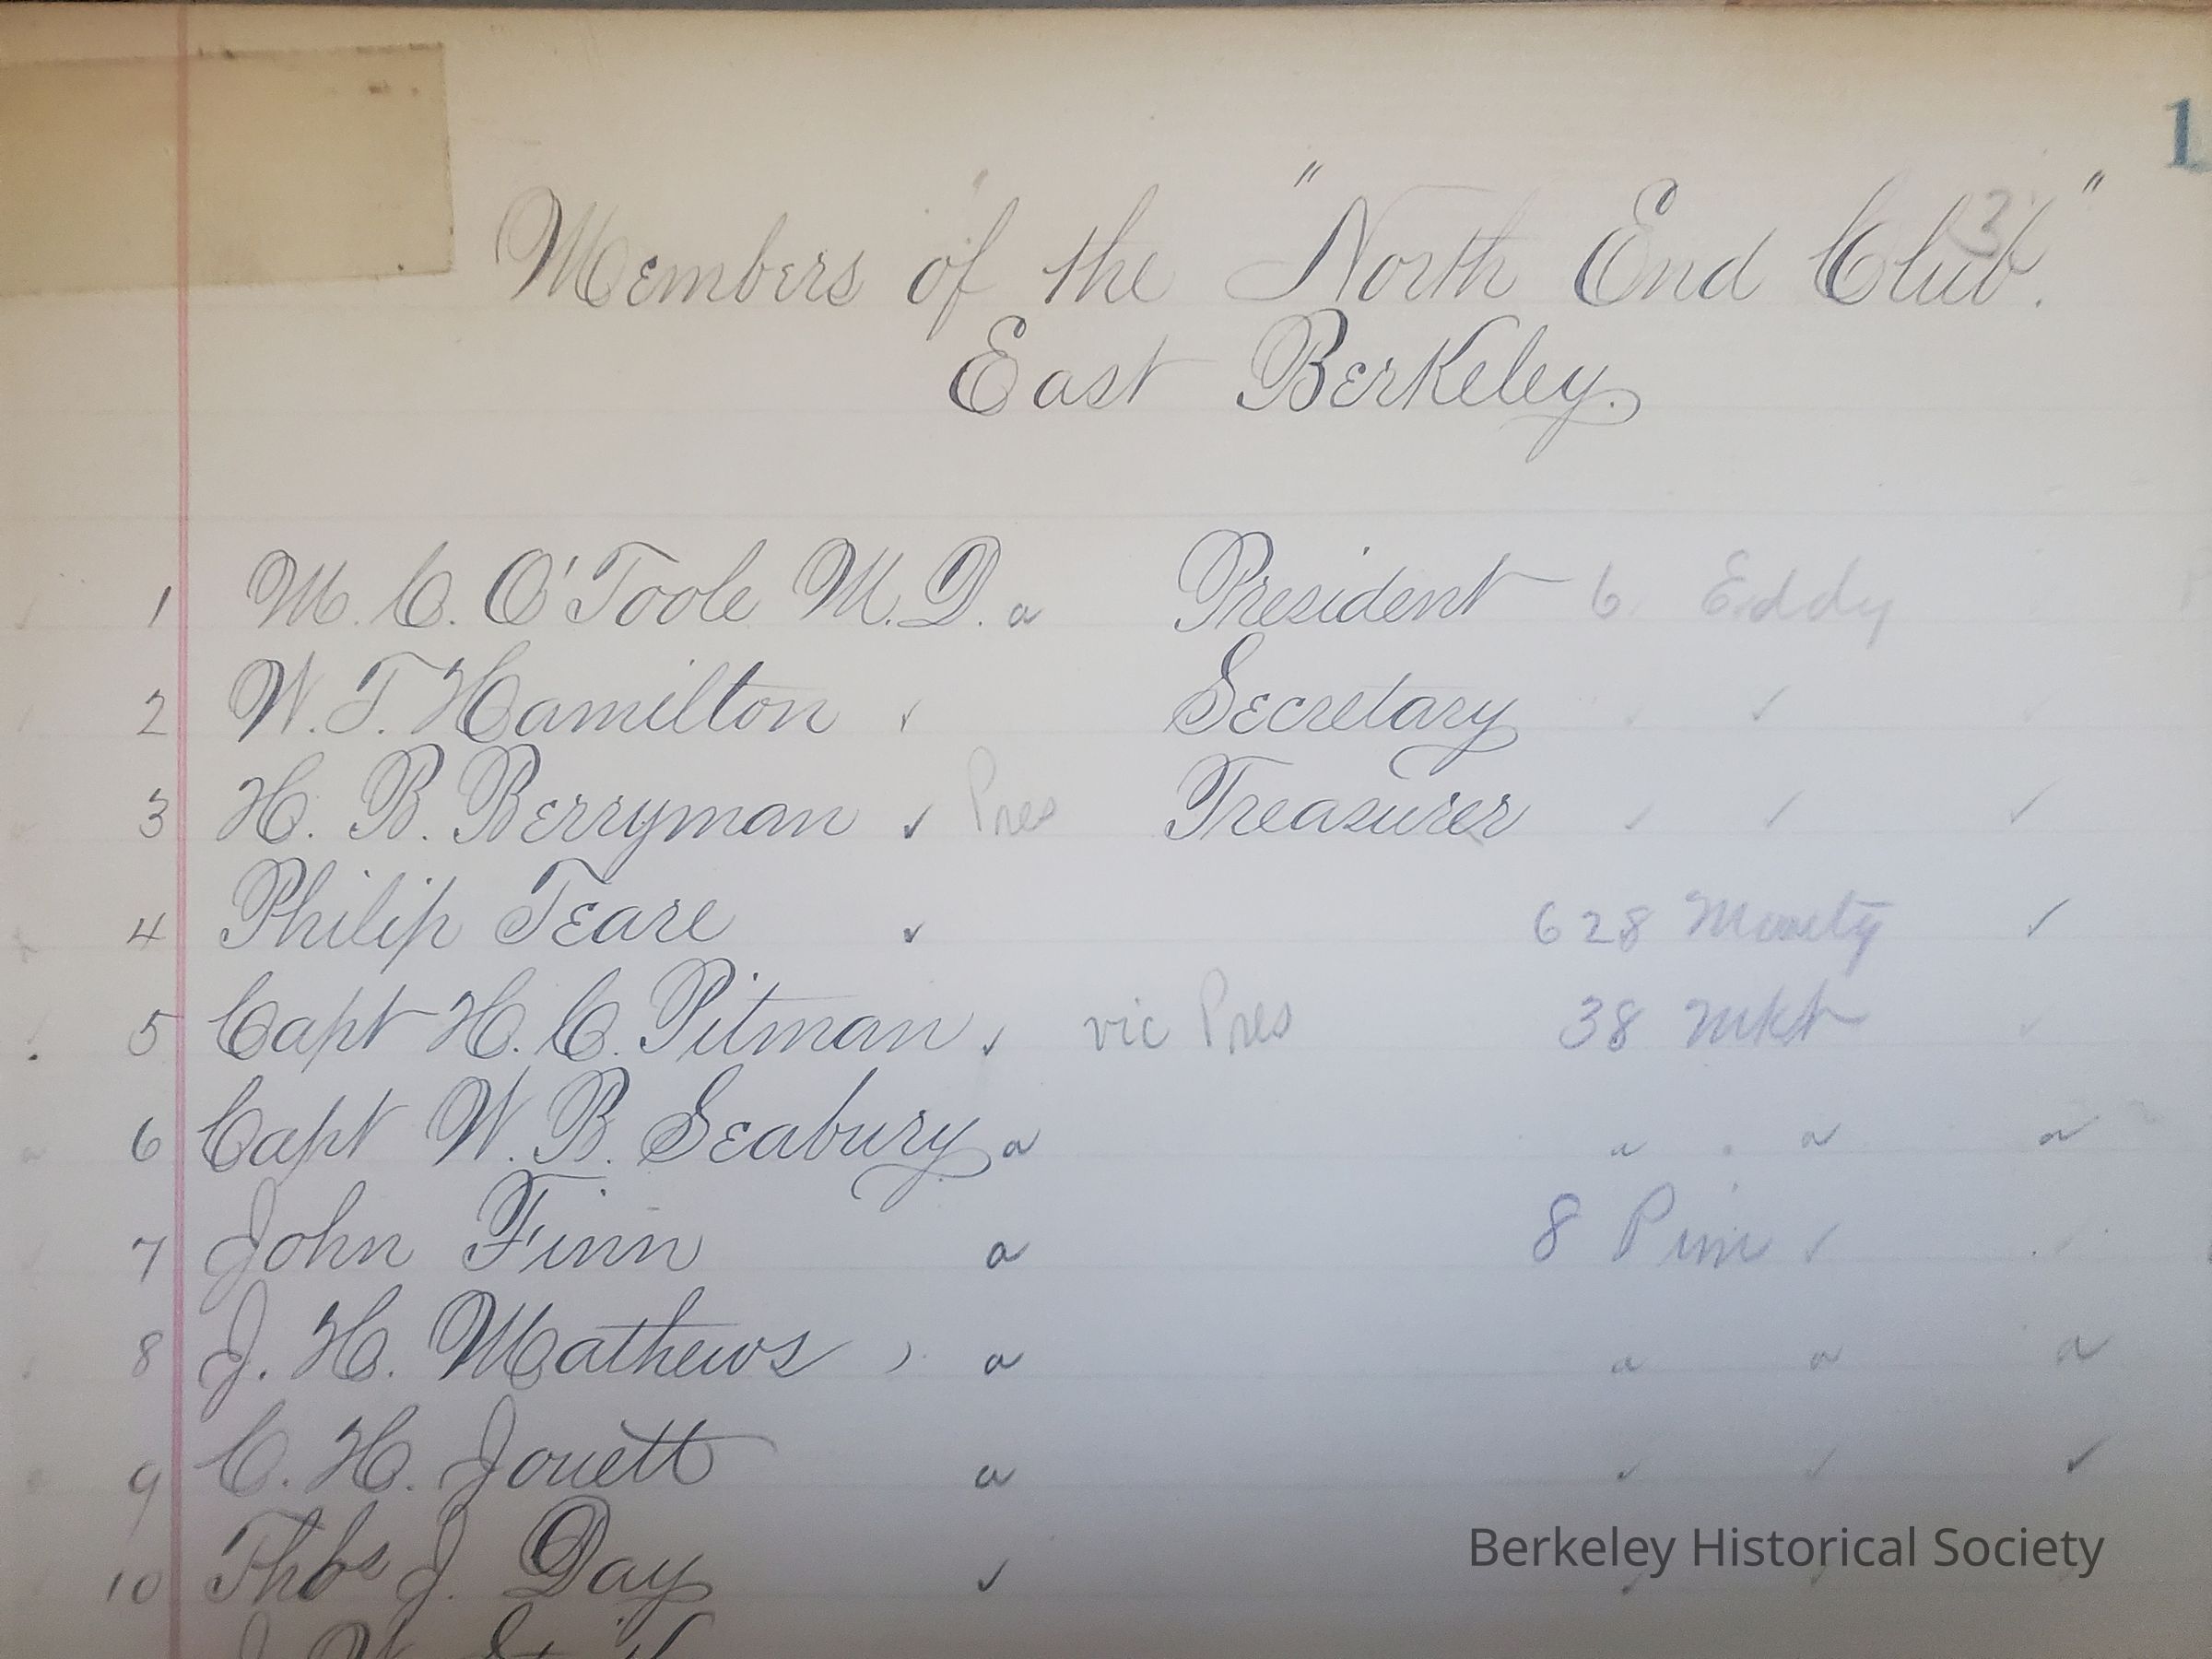 1
Members of the "North End Club."
East Berkeley.
1 M. C. O'Toole M.D. a President 6 Eddy
2 W. T. Hamilton ✓ Secretary ✓
3 H. B. Berryman ✓ Pres Treasurer ✓ ✓ ✓
4 Philip Teare ✓ 628 ✓
5 Capt H. C. Pitman ✓ vic Pres 38 Mkt
6 Capt W. B. Seabury a a a a
7 John Finn a 8 ✓
8 J. H. Mathews a a a a
9 C. H. Jouett a ✓ ✓ ✓
10 Thos J. Day ✓
Berkeley Historical Society